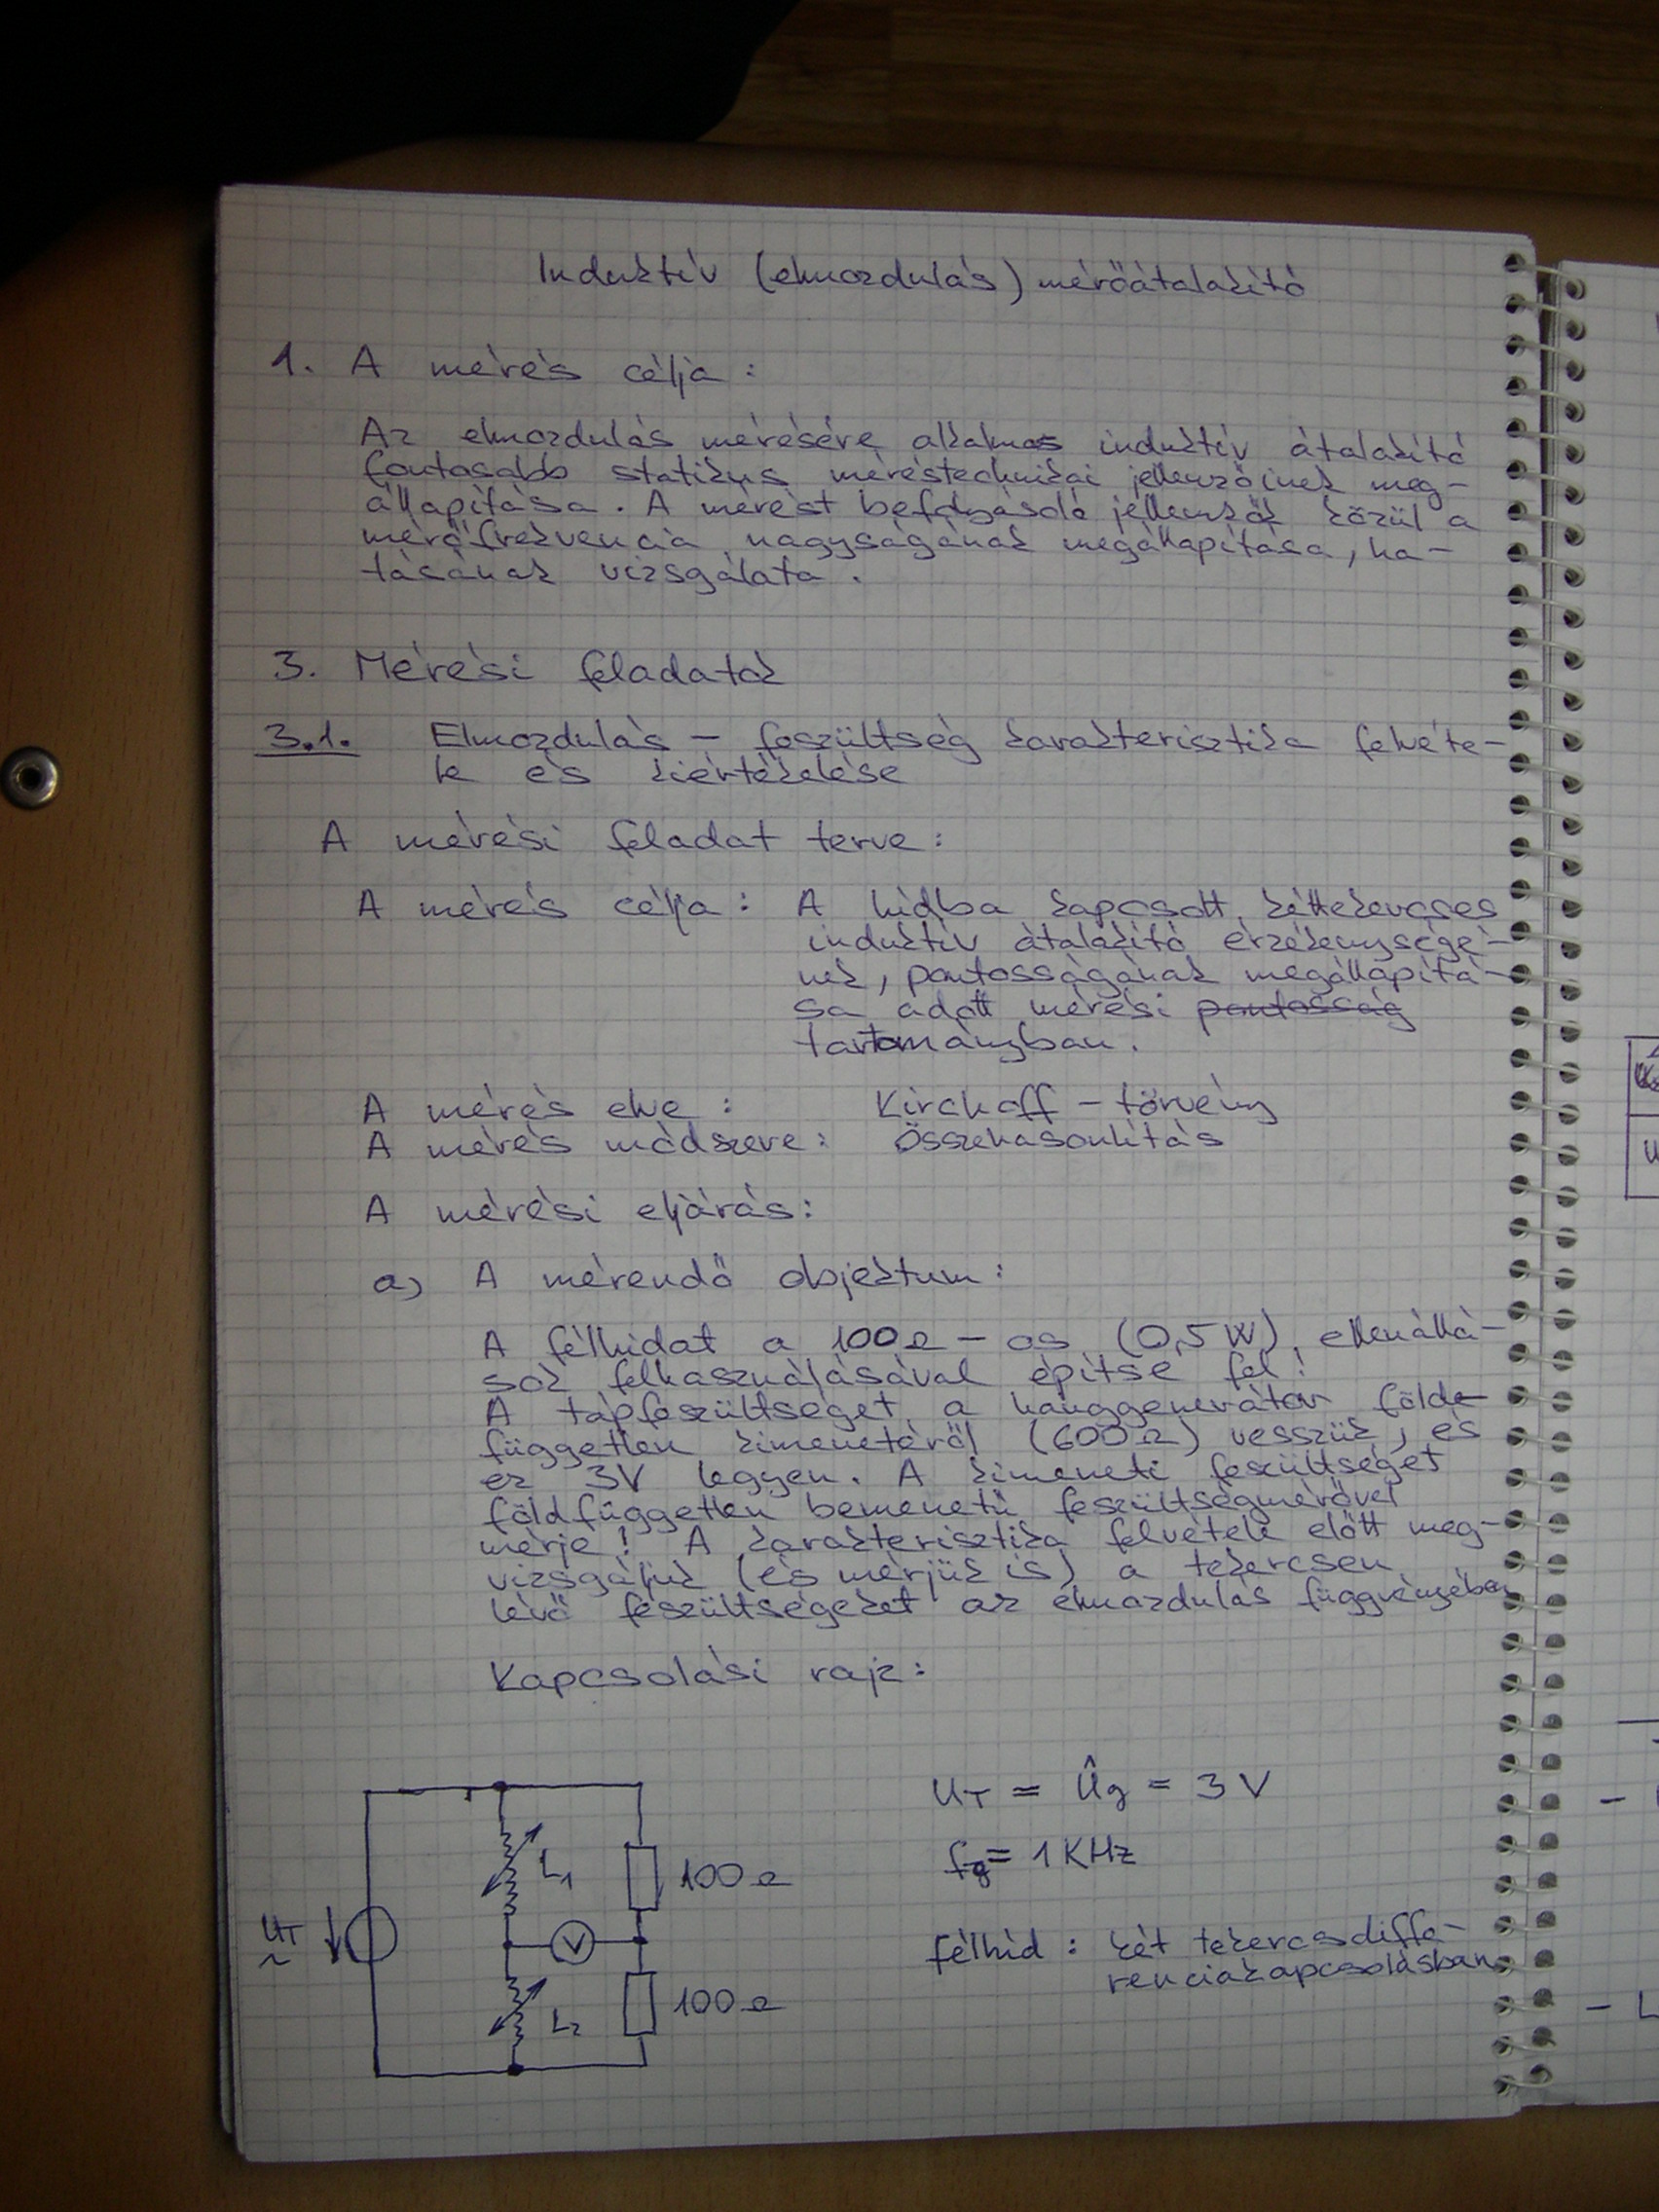 Induktív (elmozdulás) mérőátalakító
1. A mérés célja:
Az elmozdulás mérésére alkalmas induktív átalakító
fontosabb statikus méréstechnikai jellemzőinek meg-
állapítása. A mérést befolyásoló jellemzők közül a
mérőfrekvencia nagyságának megállapítása, ha-
tásának vizsgálata.
3. Mérési feladatok
3.1. Elmozdulás - feszültség karakterisztika felvéte-
le és kiértékelése
A mérési feladat terve:
A mérés célja: A hídba kapcsolt, kéttekercses
induktív átalakító érzékenységé-
nek, pontosságának megállapítá-
sa adott mérési pontosság
tartományban.
A mérés elve: Kirchoff - törvény
A mérés módszere: Összehasonlítás
A mérési eljárás:
a) A mérendő objektum:
A félhidat a 100Ω - os (0,5 W) ellenállá-
sok felhasználásával építse fel!
A tápfeszültséget a hanggenerátor föld-
független kimenetéről (600Ω) vesszük, és
ez 3V legyen. A kimeneti feszültséget
földfüggetlen bemenetű feszültségmérővel
mérje! A karakterisztika felvétele előtt meg-
vizsgáljuk (és mérjük is) a tekercsen
lévő feszültségeket az elmozdulás függvényében
Kapcsolási rajz:
U_T = Û_g = 3 V
f_g = 1 KHz
L₁
100Ω
U_T
~
V
félhíd: két tekercs diffe-
renciálkapcsolásban
L₂
100Ω